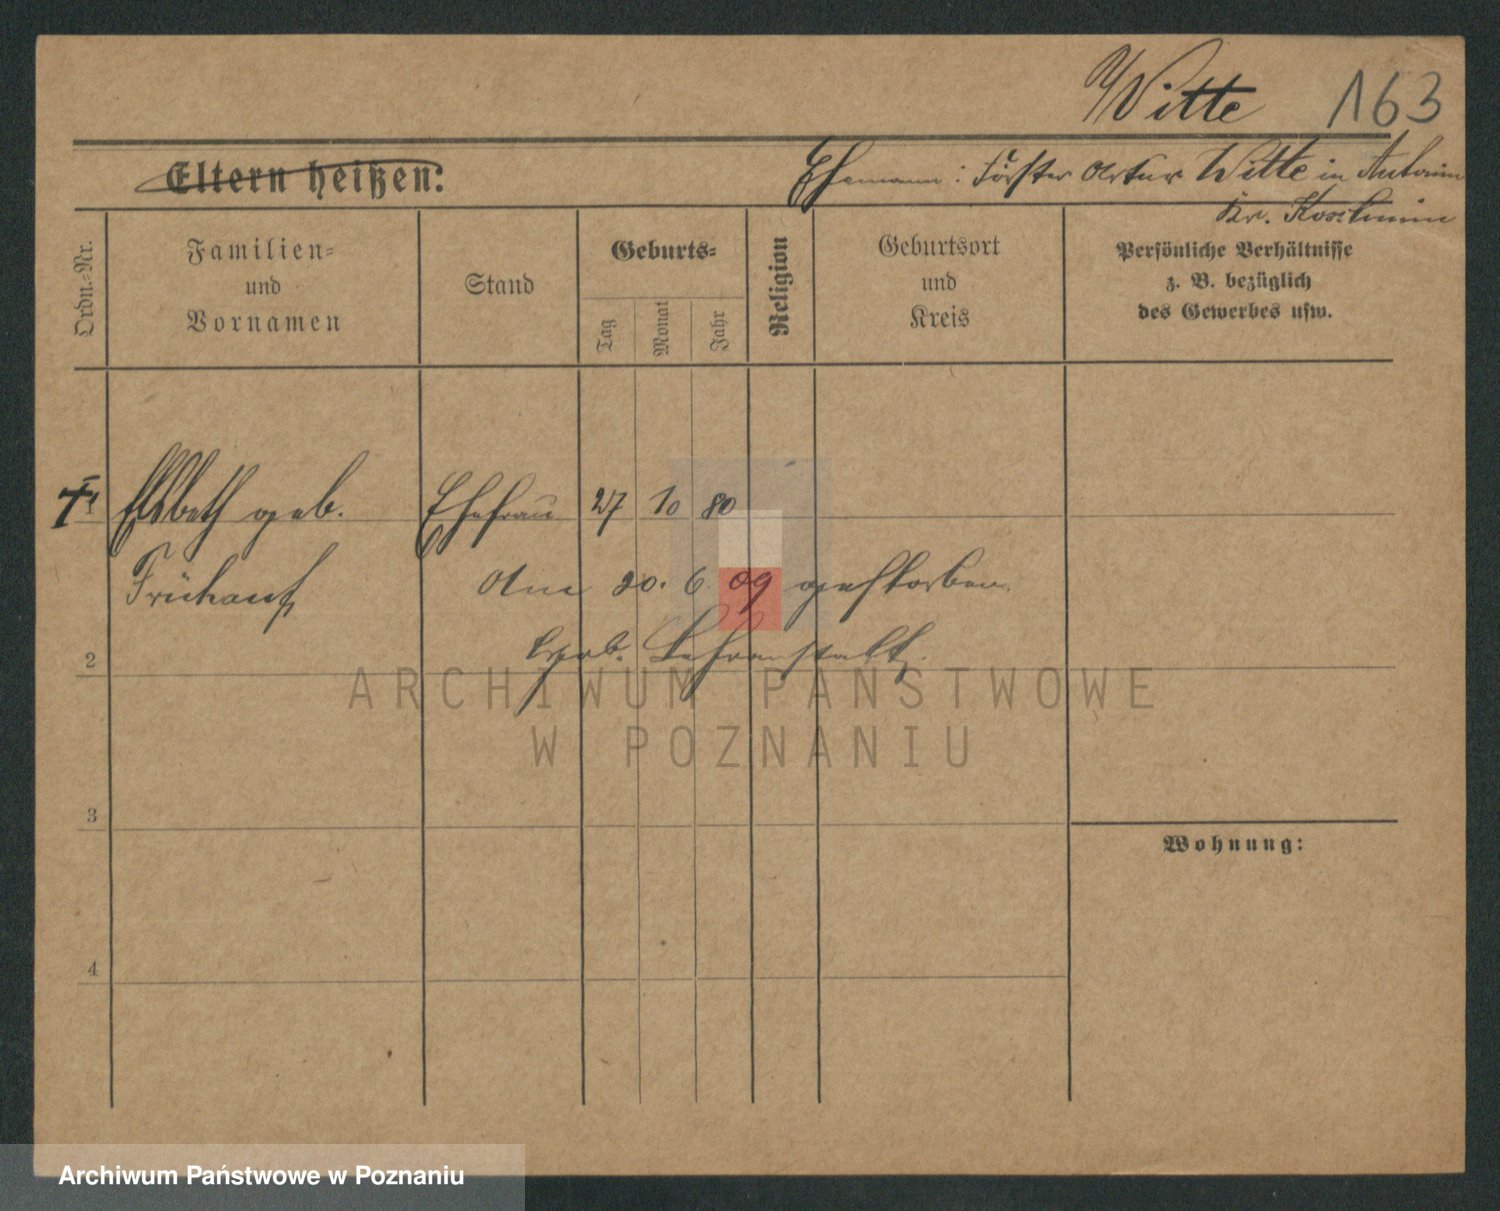 Witte 163
Eltern heißen:
Ehemann: Förster Artur Witte in Antonin
Kr. Koschmin
Ordn.-Nr.
Familien-
und
Vornamen
Stand
Geburts-
Tag
Monat
Jahr
Religion
Geburtsort
und
Kreis
Persönliche Verhältnisse
z. B. bezüglich
des Gewerbes usw.
Elsbeth geb. Ehefrau 27 10 80
Frühauf Am 20. 6. 09 gestorben
Hebam. Lehranstalt
2
3
4
Wohnung:
ARCHIWUM PAŃSTWOWE
W POZNANIU
Archiwum Państwowe w Poznaniu